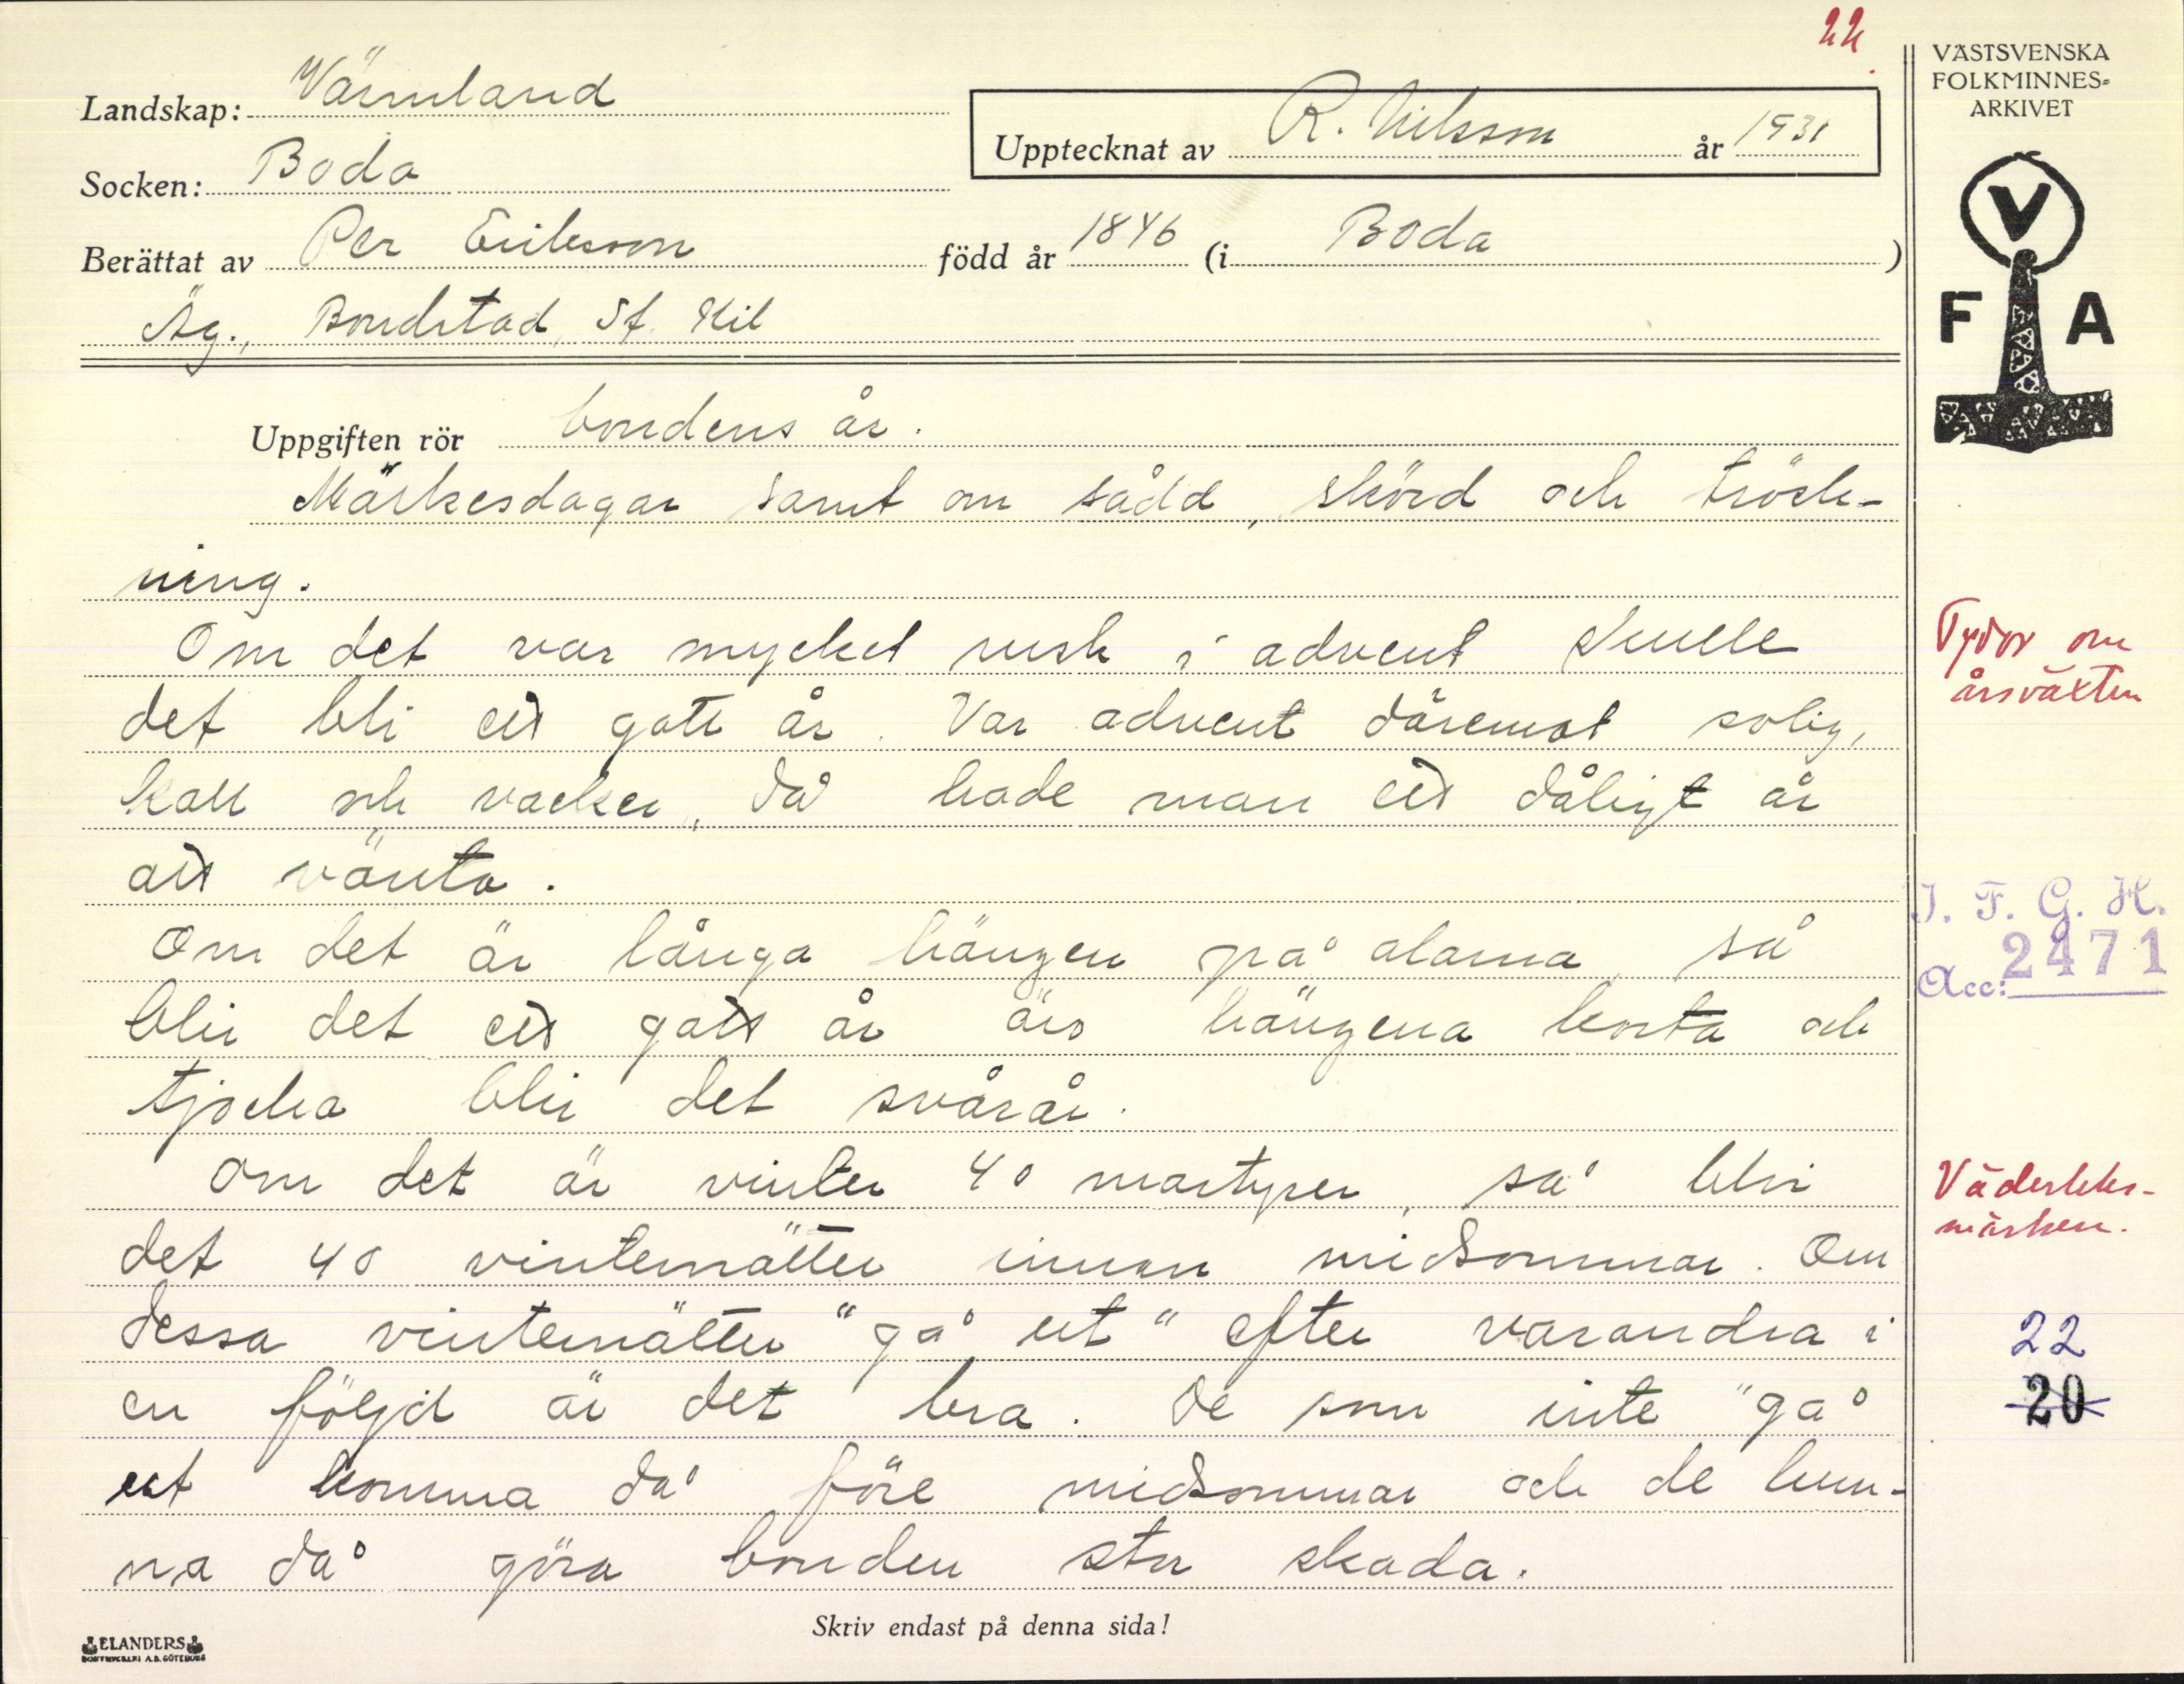 22.
VÄSTSVENSKA
FOLKMINNES=
ARKIVET
Landskap: Värmland
Upptecknat av R. Nilsson år 1931
Socken: Boda
Berättat av Per Eriksson född år 1846 (i Boda )
Äg., Bondstad, St. Kil
V
F A
Uppgiften rör bondens år.
Märkesdagar samt om sådd, skörd och trösk-
ning.
Om det var mycket rusk i advent skulle
det bli ett gott år. Var advent däremot solig,
kall och vacker, då hade man ett dåligt år
att vänta.
Om det är långa hängen på alarna, så
blir det ett gott år äro hängena korta och
tjocka blir det svårår.
Om det är vinter 40 martyrer, så blir
det 40 vinternätter innan midsommar. Om
dessa vinternätter "gå ut" efter varandra i
en följd är det bra. De som inte "gå
ut komma då före midsommar och de kun-
na då göra bonden stor skada.
Tydor om
årsväxten
I. F. G. H.
Acc: 2471
Väderleks-
märken.
22
20
Skriv endast på denna sida!
ELANDERS
BOKTRYCKERI A.B. GÖTEBORG